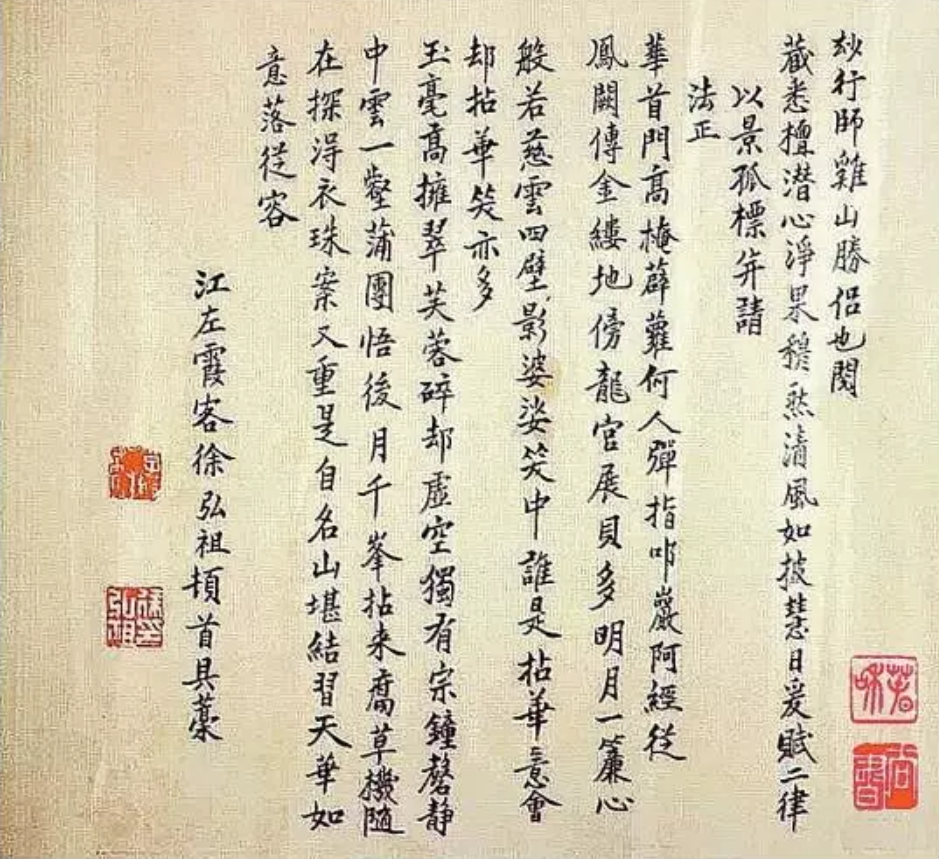 玅行師雞山勝侶也閱
藏悉檀潛心淨果穆然清風如披慧日爰賦二律
以景孤標并請
法正
華首門高掩薜蘿何人彈指叩巖阿經從
鳳闕傳金縷地傍龍宮展貝多明月一簾心
般若慈雲四壁影婆娑笑中誰是拈華意會
却拈華笑亦多
玉毫高擁翠芙蓉碎却虛空獨有宗鐘磬靜
中雲一壑蒲團悟後月千峯拈來腐草機隨
在探得衣珠案又重是自名山堪結習天華如
意落從容
江左霞客徐弘祖頓首具藁
徐弘祖